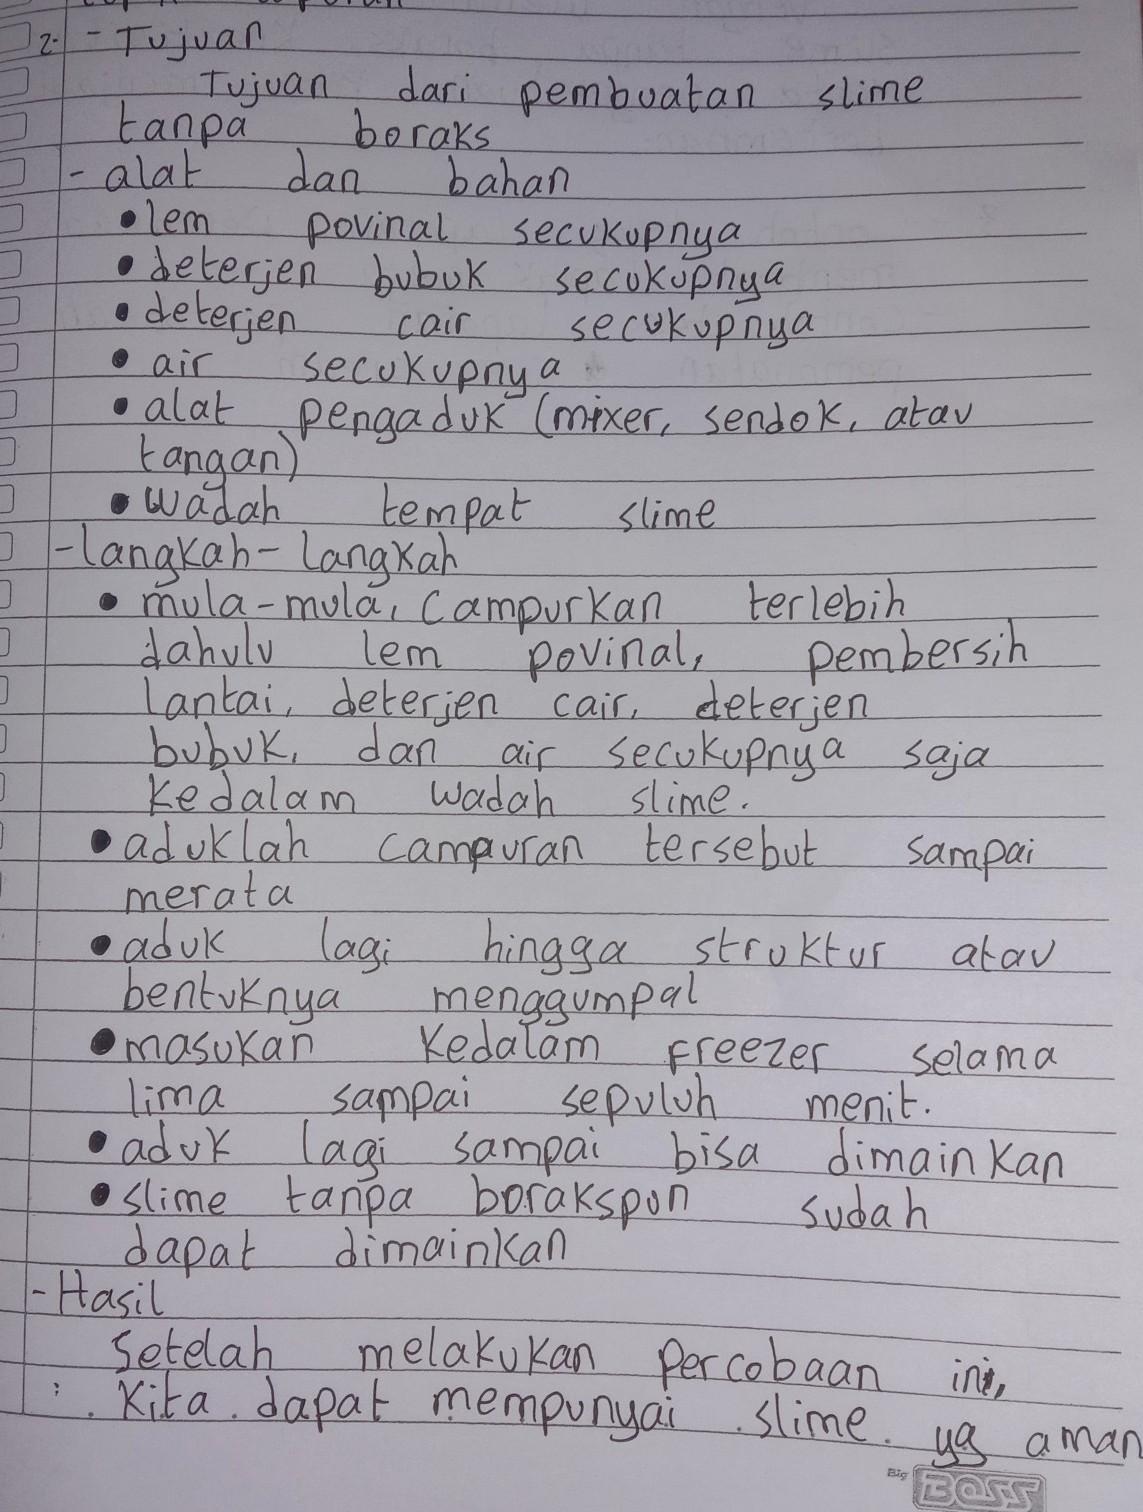 2. - Tujuan
Tujuan dari pembuatan slime
tanpa boraks
- alat dan bahan
• lem povinal secukupnya
• deterjen bubuk secukupnya
• deterjen cair secukupnya
• air secukupnya
• alat pengaduk (mixer, sendok, atau
tangan)
• wadah tempat slime
- langkah - langkah
• mula-mula, campurkan terlebih
dahulu lem povinal, pembersih
lantai, deterjen cair, deterjen
bubuk, dan air secukupnya saja
kedalam wadah slime.
• aduklah campuran tersebut sampai
merata
• aduk lagi hingga struktur atau
bentuknya menggumpal
• masukan kedalam freezer selama
lima sampai sepuluh menit.
• aduk lagi sampai bisa dimainkan
• slime tanpa borakspun sudah
dapat dimainkan
- Hasil
Setelah melakukan percobaan ini,
kita dapat mempunyai slime yg aman
Big BOSS